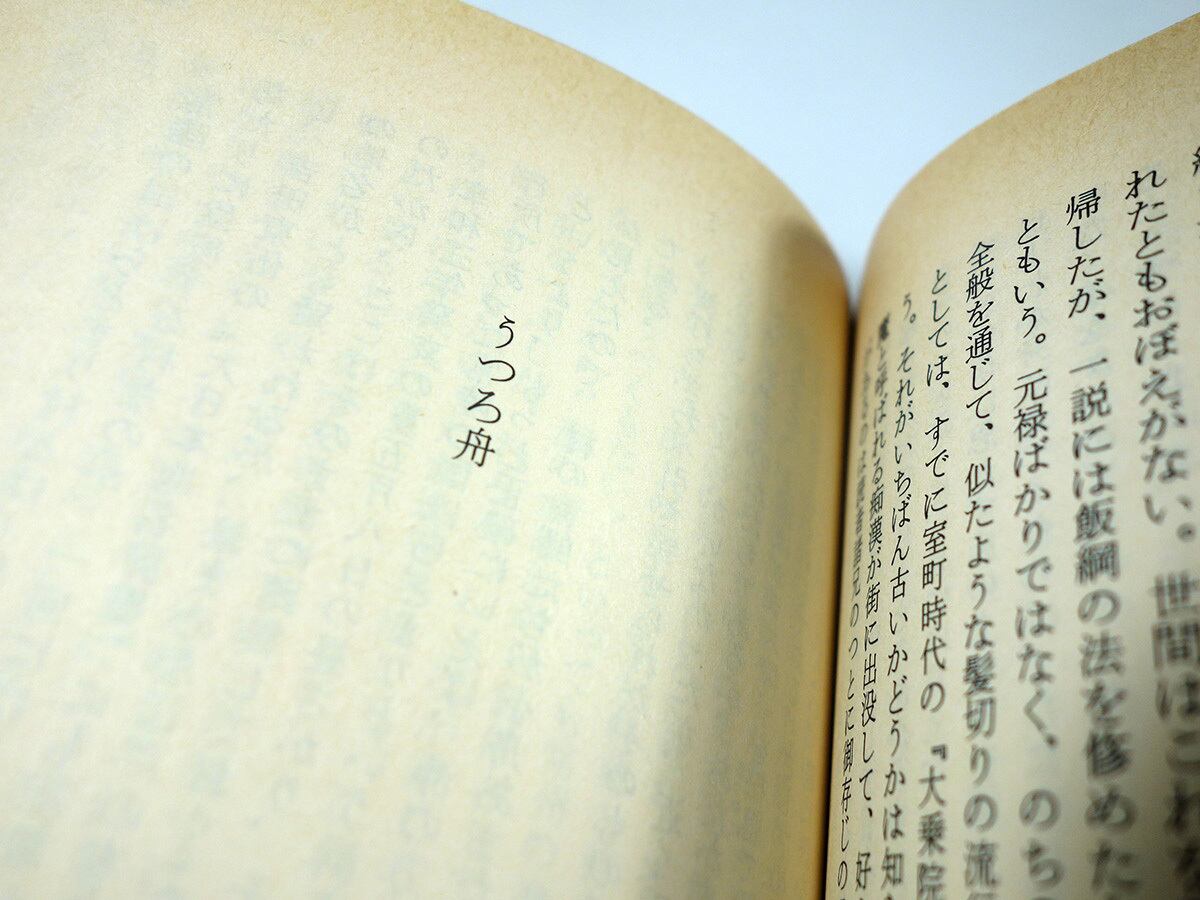 れたともおぼえがない。世間はこれを
帰したが、一説には飯綱の法を修めた
ともいう。元禄ばかりではなく、のち
全般を通じて、似たような髪切りの流行
としては、すでに室町時代の『大乗院
う。それがいちばん古いかどうかは知
と呼ばれる痴漢が街に出没して、好
のっとに御存じの
うつろ舟